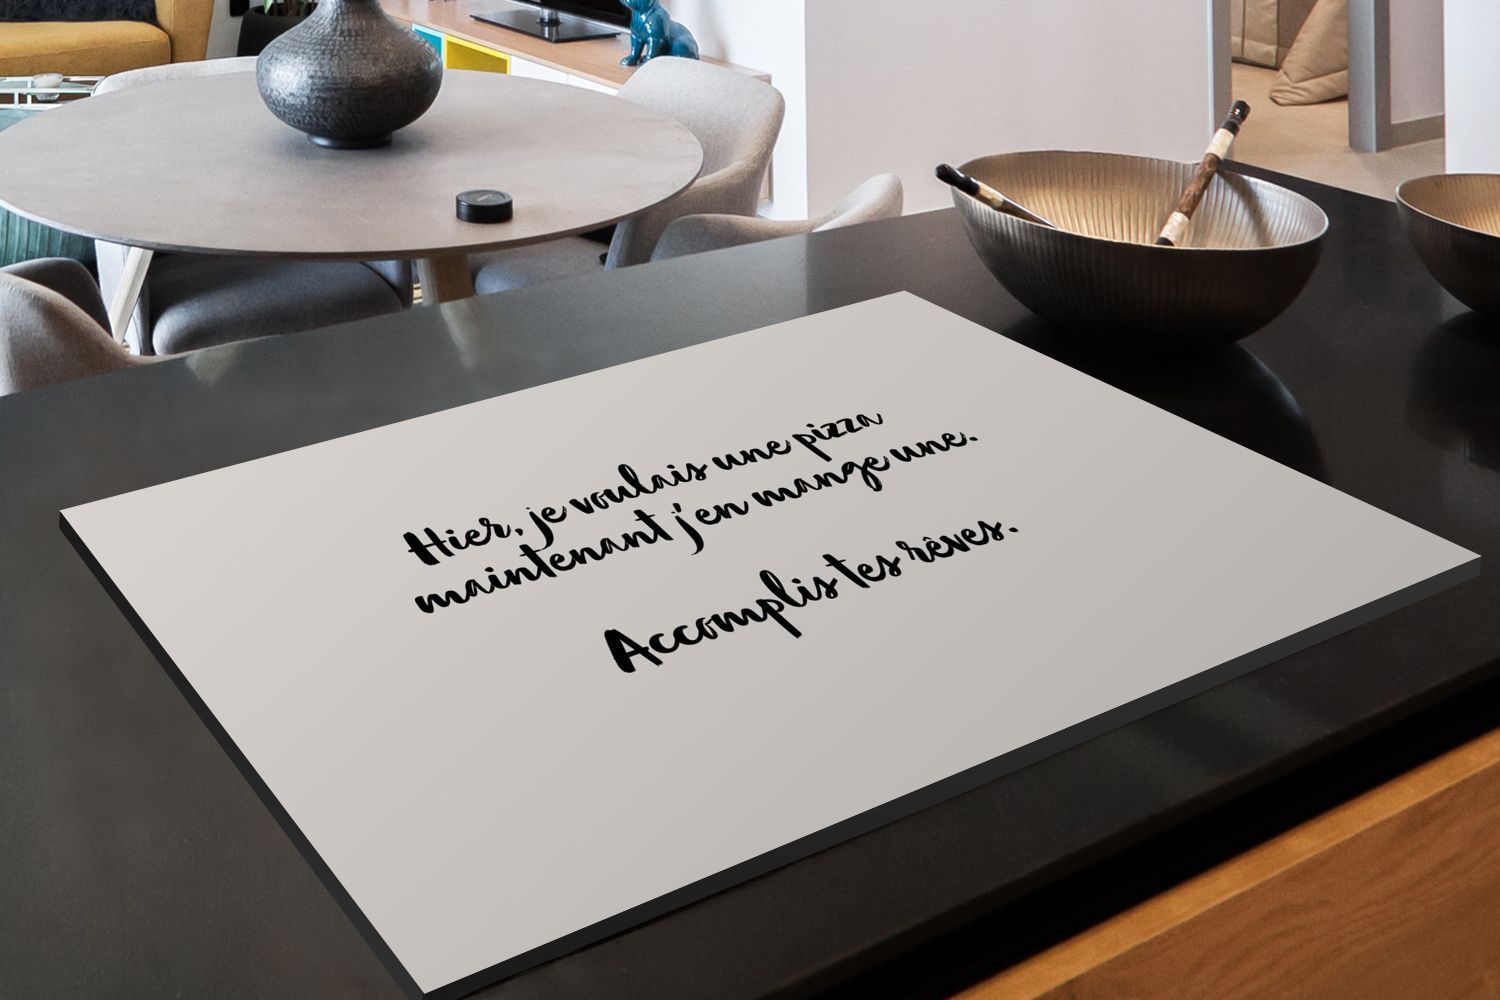 Hier, je voulais une pizza
maintenant j'en mange une.
Accomplis tes rêves.